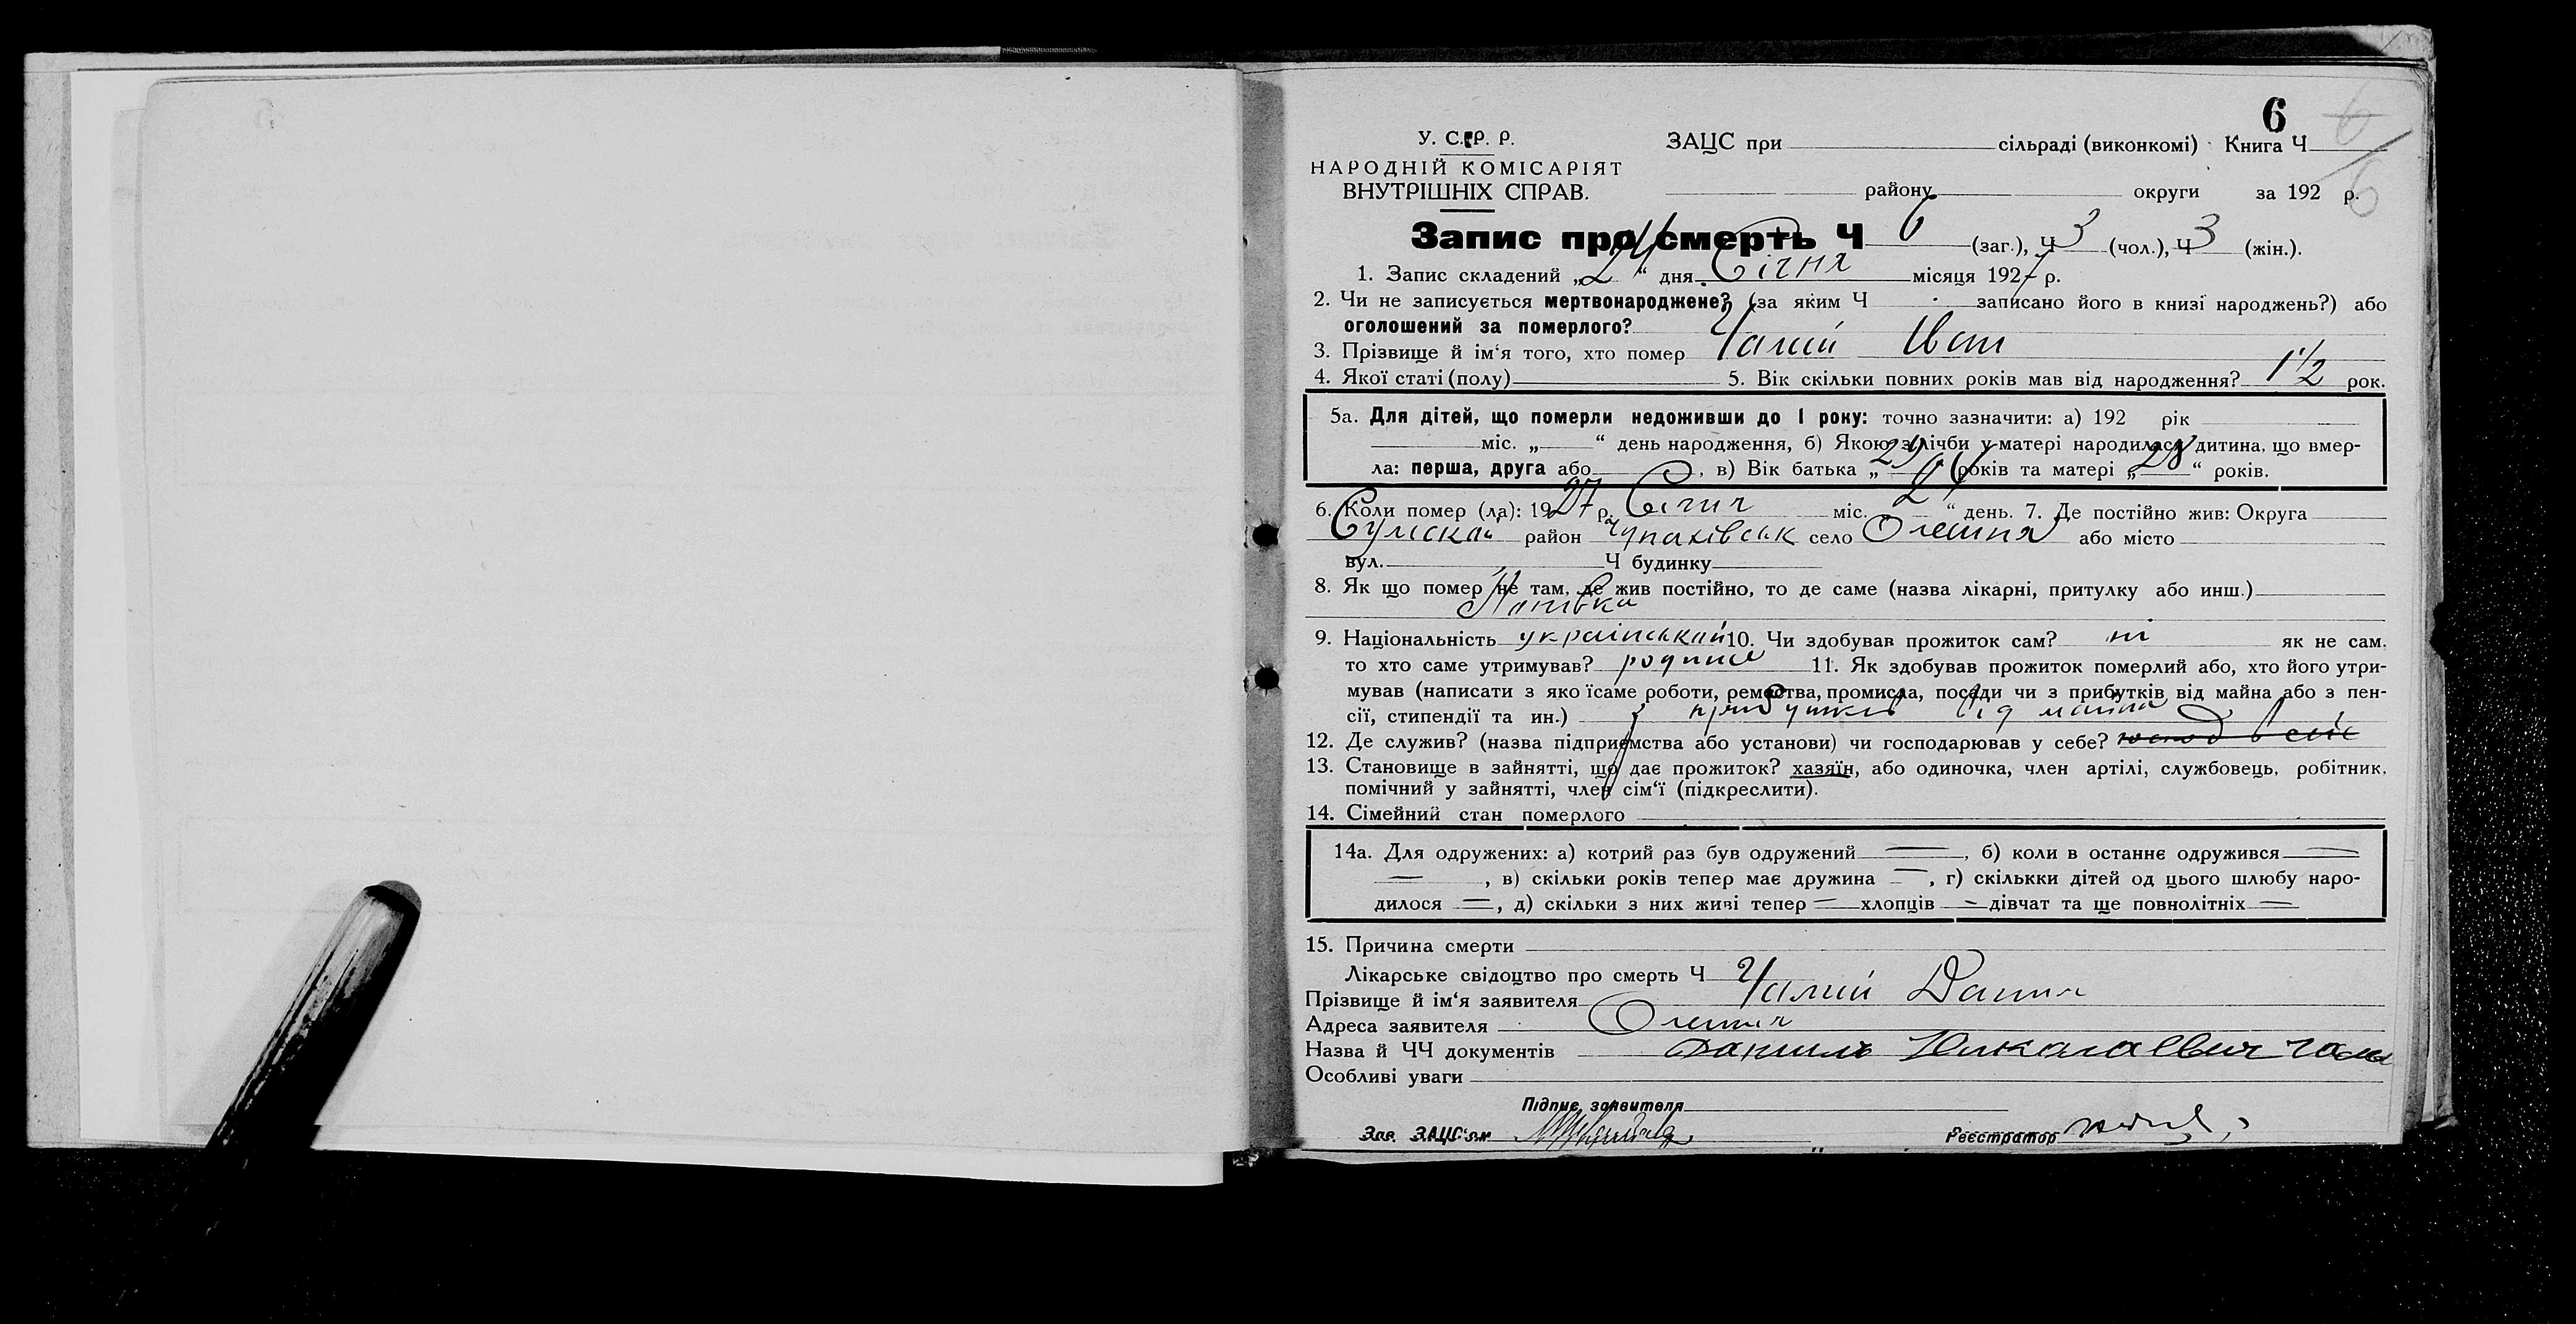 6
6
6
У. С. Р. Р. ЗАЦС при сільраді (виконкомі) Книга Ч
НАРОДНІЙ КОМІСАРІЯТ
ВНУТРІШНІХ СПРАВ. району округи за 192 р.
Запис про смерть Ч 6 (заг.), Ч 3 (чол.), Ч 3 (жін.).
1. Запис складений „24“ дня Січня місяця 1927 р.
2. Чи не записується мертвонароджене? (за яким Ч записано його в книзі народжень?) або
оголошений за померлого?
3. Прізвище й ім‘я того, хто помер Чалий Іван
4. Якої статі (полу) 5. Вік скільки повних років мав від народження? 1 1/2 рок.
5а. Для дітей, що померли недоживши до 1 року: точно зазначити: а) 192 рік
міс. „ “ день народження, б) Якою з лічби у матері народилася дитина, що вмер-
ла: перша, друга або , в) Вік батька „29“ років та матері „28“ років.
6. Коли помер (ла): 1927 р. Січня міс. „24“ день. 7. Де постійно жив: Округа
Сумской район Чупахівськ село Олешня або місто
вул. Ч будинку
8. Як що помер не там, де жив постійно, то де саме (назва лікарні, притулку або инш.)
9. Національність український 10. Чи здобував прожиток сам? ні як не сам,
то хто саме утримував? родители 11. Як здобував прожиток померлий або, хто його утри-
мував (написати з яко їсаме роботи, ремества, промисла, посади чи з прибутків від майна або з пен-
сії, стипендії та ин.) з прибутків від майна
12. Де служив? (назва підприємства або установи) чи господарював у себе? господ в селе
13. Становище в зайнятті, що дає прожиток? хазяїн, або одиночка, член артілі, службовець, робітник,
помічний у зайнятті, член сім‘ї (підкреслити).
14. Сімейний стан померлого
14а. Для одружених: а) котрий раз був одружений — , б) коли в останнє одружився —
— , в) скільки років тепер має дружина — , г) скількки дітей од цього шлюбу наро-
дилося — , д) скільки з них живі тепер — хлопців — дівчат та ще повнолітніх —
15. Причина смерти
Лікарське свідоцтво про смерть Ч
Прізвище й ім‘я заявителя Чалий Данил
Адреса заявителя Олешня
Назва й ЧЧ документів Данило
Особливі уваги
Підпис заявителя
Зав. ЗАЦС‘ом
Реєстратор